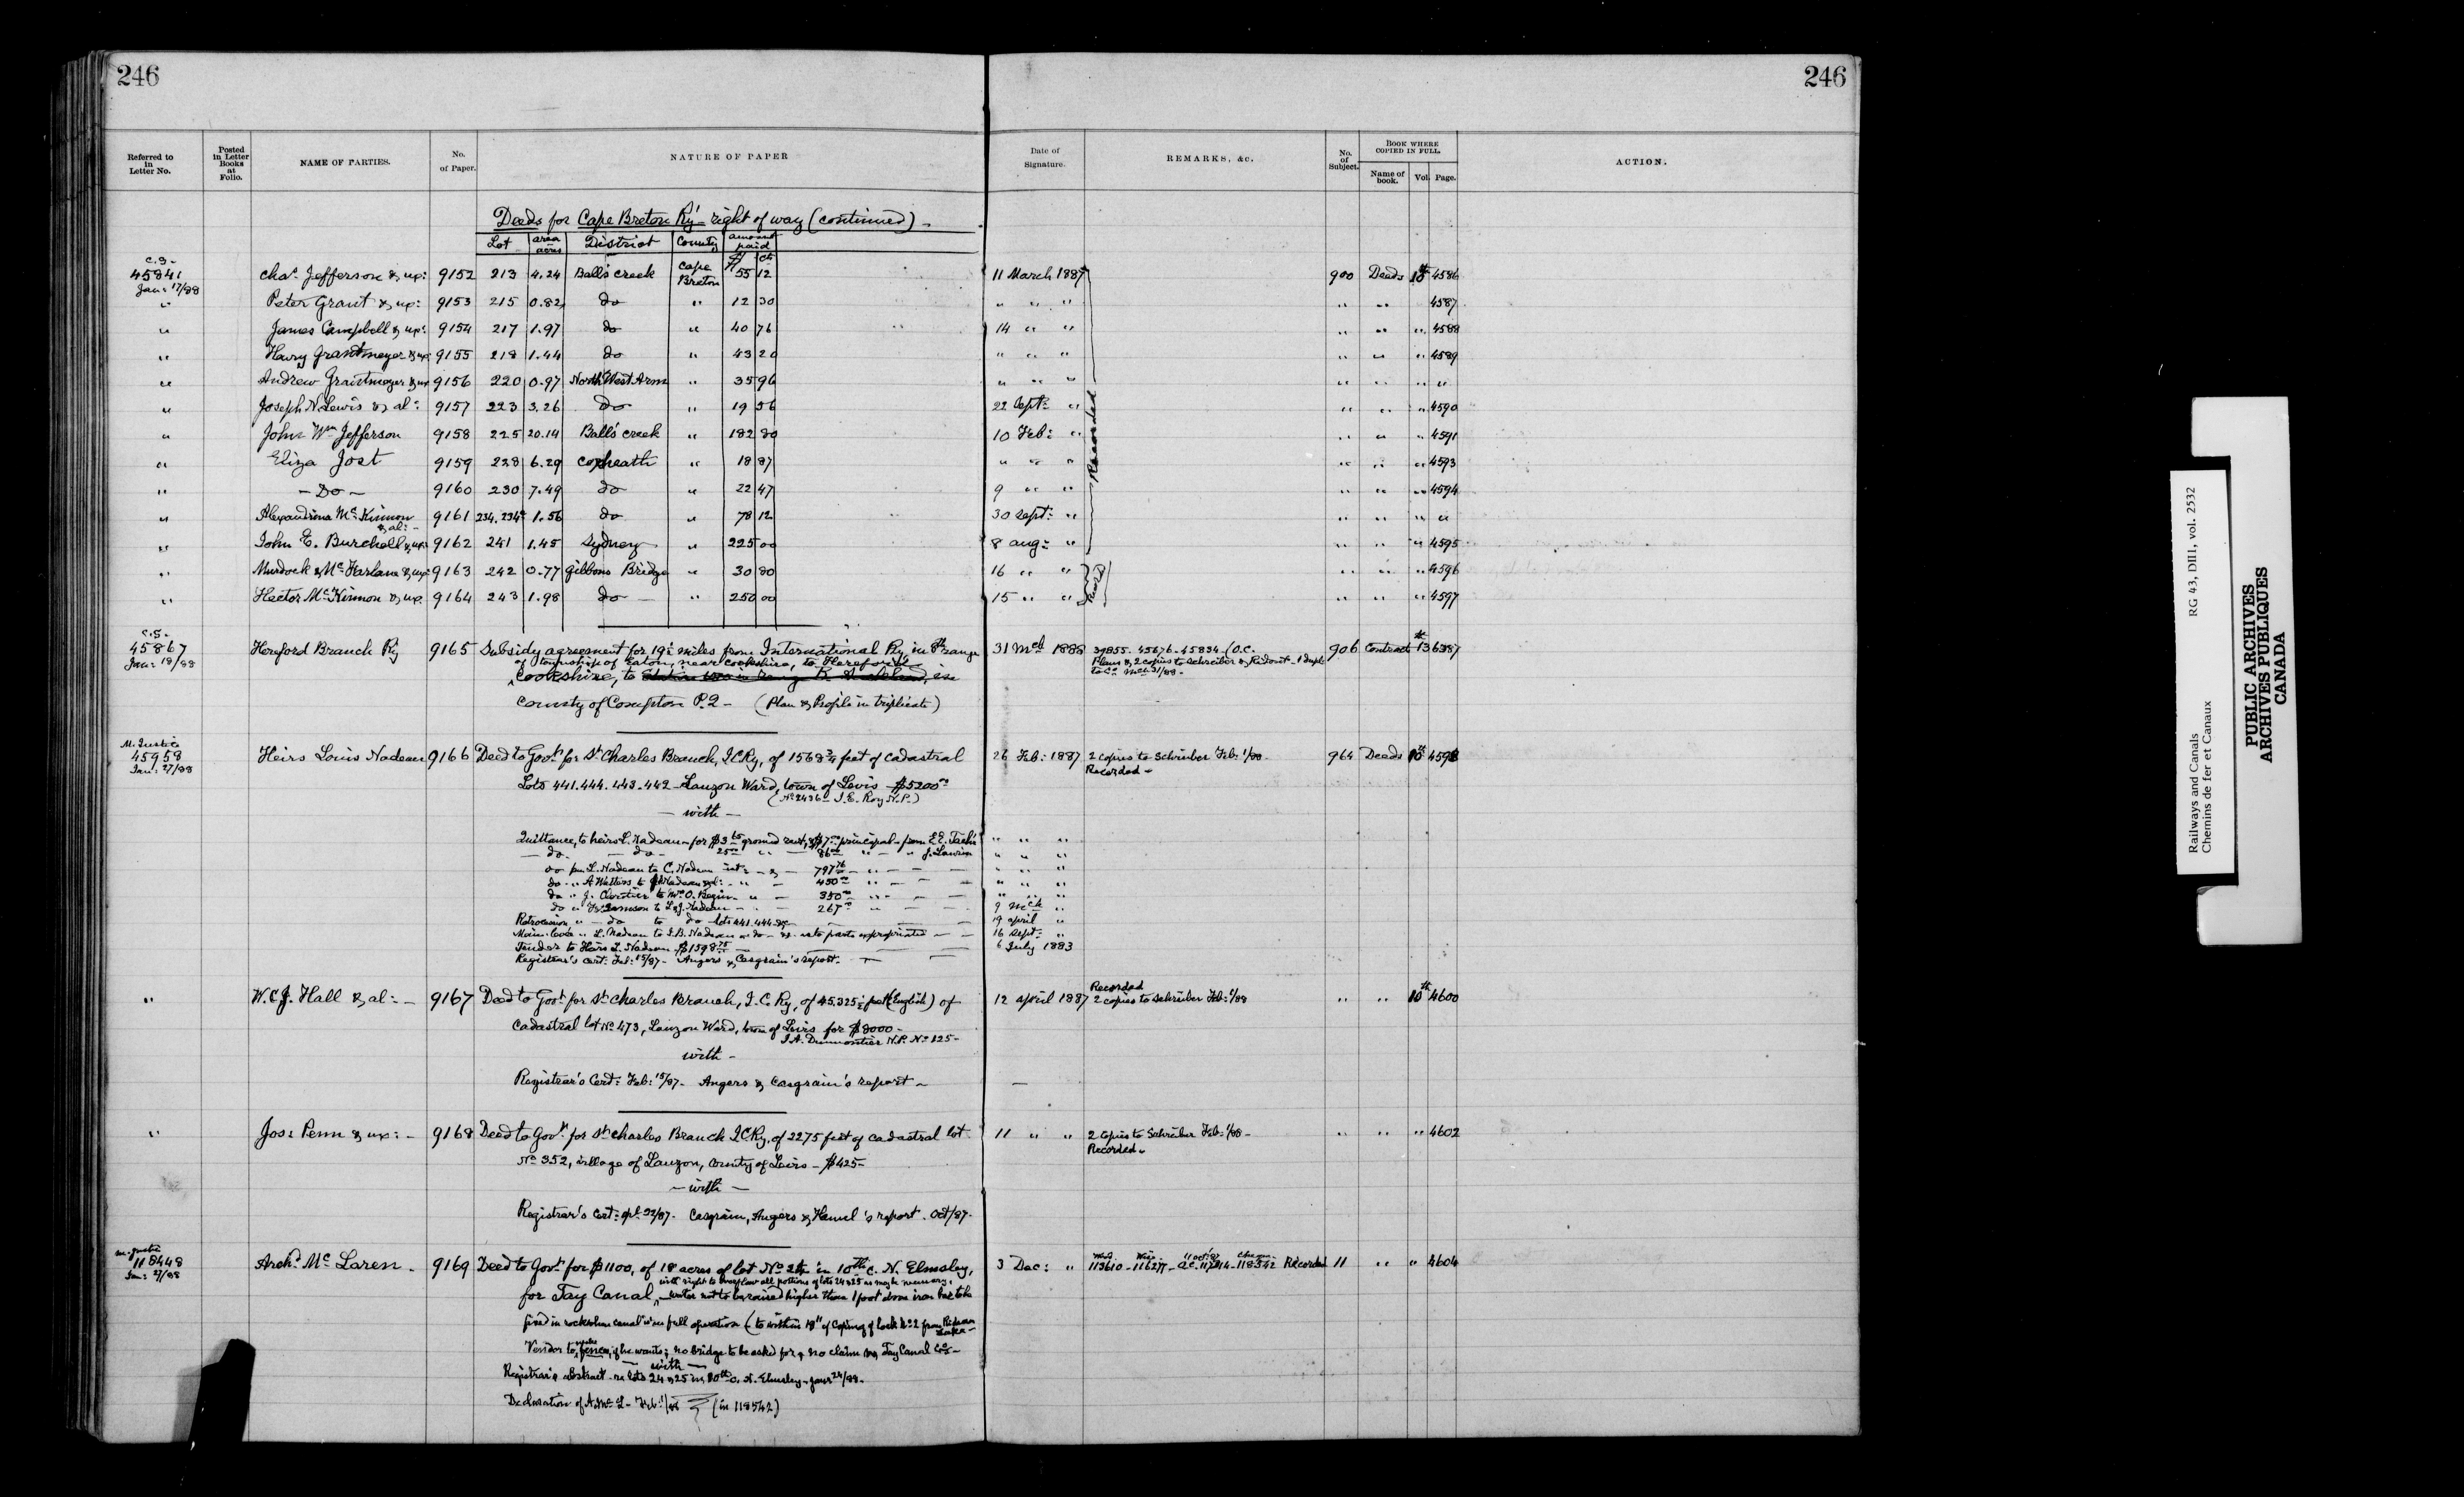 246
246
Referred to in Letter No.
Posted in Letter Books at Folio.
NAME OF PARTIES.
No. of Paper.
NATURE OF PAPER
Date of Signature.
REMARKS, &c.
No. of Subject.
BOOK WHERE COPIED IN FULL.
Name of book. Vol. Page.
ACTION.
Deeds for Cape Breton Ry - right of way (continued) -
Lot area acres District County amount paid
$ cts
C.S. 45841 Jan: 17/88 Chas. Jefferson & ux: 9152 213 4.24 Ball's creek Cape Breton 55 12 11 March 1887 900 Deeds 10th 4586
" Peter Grant & ux: 9153 215 0.82 do " 12 30 " " " " " 4587
" James Campbell & ux: 9154 217 1.97 do " 40 76 14 " " " " " 4588
" Henry Grantmyer & ux: 9155 218 1.44 do " 43 20 " " " " " " 4589
" Andrew Grantmyer & ux 9156 220 0.97 North West Arm " 35 96 " " " " " " "
" Joseph N. Lewis & al: 9157 223 3.26 do " 19 56 22 Sept: " " " " 4590
" John Wm Jefferson 9158 225 20.14 Ball's creek " 182 80 10 Feb: " " " " 4591
" Eliza Jost 9159 228 6.29 Coxheath " 18 87 " " " " " " 4593
" - Do - 9160 230 7.49 do " 22 47 9 " " " " " 4594
" Alexandrina McKinnon & al: - 9161 234.234a 1.56 do " 78 12 30 Sept: " " " " "
" John E. Burchell & ux: 9162 241 1.45 Sydney " 225 00 8 Aug: " " " " 4595
" Murdock McFarlane & ux: 9163 242 0.77 Gibbons Bridge " 30 80 16 " " " " " 4596
" Hector McKinnon & ux: 9164 243 1.98 do " 250 00 15 " " " " " 4597
Recorded
C.S. 45867 Jan: 18/88 Hereford Branch Ry 9165 Subsidy agreement for 19½ miles from International Ry, in 8th range 31 Mch 1888 39855. 45676. 45834 - (O.C. 906 Contract 13th 6387
of township of Eaton, near Cookshire, to Hereford in
Plans & 2 copies to Schreiber & Ridout - 1 dupl:
to Co. Mch 31/88 -
Cookshire, to in
County of Compton P.Q - (Plan & Profile in triplicate)
M. Justice 45958 Jan: 27/88 Heirs Louis Nadeau 9166 Deed to Govt for St Charles Branch, I.C.Ry, of 1568¾ feet of cadastral 26 Feb: 1887 2 copies to Schreiber Feb: 1/88 - 964 Deeds 10th 4598
Recorded -
Lots 441.444.443.442 - Lauzon Ward, town of Levis - $5200.00
(No 2436 - J.E. Roy N.P.)
- with -
Quittance, to heirs L. Nadeau - for ground rent, & principal - from E.E. Taché " " "
- do - - do - 25.00 " " J. Lawson " " "
do from L. Nadeau to C. Nadeau int: - & - 797.76 " " "
do " A Watters to Nadeau & al: - 450.00 " " " "
do " J. Cloutier to Mrs O. Begin - 350.00 " " " "
do " Samson to L & J. Nadeau - 267.00 9 Mch "
Retrocession " - do to do lots 441.444 &c 19 April "
Main-levée " L. Nadeau to J.B. Nadeau as to parts expropriated 16 Sept: "
Tender to Heirs L. Nadeau $1598.75 6 July 1883
Registrar's cert: Feb: 15/87 - Angers & Casgrain's report -
" W.C.J. Hall & al: - 9167 Deed to Govt for St Charles Branch, I.C.Ry, of 45.325 feet (English) of 12 April 1887 Recorded 2 copies to Schreiber Feb: 1/88 " " 10th 4600
cadastral lot No 473, Lauzon Ward, town of Levis for $8000 -
J.A. Dumontier N.P. No 125 -
with -
Registrar's Cert: Feb: 15/87 - Angers & Casgrain's report -
" Jos: Penn & ux: - 9168 Deed to Govt for St Charles Branch I.C.Ry, of 2275 feet of cadastral lot 11 " " 2 copies to Schreiber Feb: 1/88 - " " " 4602
Recorded -
No 352, village of Lauzon, County of Levis - $425 -
- with -
Registrar's Cert: Apl 22/87 - Casgrain, Angers & Hamel's report. Oct/87 -
M. Justice 118448 Jan: 27/88 Archd McLaren - 9169 Deed to Govt for $1100, of 18 acres of lot No 24 in 10th c. N. Elmsley, 3 Dec: " 113610 - 116277 - 118542 Recorded 11 " " 4604
with right to overflow all portions of lots 24 & 25 as may be necessary.
for Tay Canal, - water not to be raised higher than 1 foot above iron bar to be
fixed in rock when canal is in full operation (to within 18" of coping of lock No 2 from Rideau Lake -
Vendor to make fence, if he wants; no bridge to be asked for & no claim Tay Canal Co -
- with -
Registrar's abstract - re lots 24 & 25 in 10th c. N. Elmsley - Jany 24/88 -
Declaration of A. McL - Feb: (in 118542)
Railways and Canals RG 43, DIII, vol. 2532
Chemins de fer et Canaux
PUBLIC ARCHIVES
ARCHIVES PUBLIQUES
CANADA